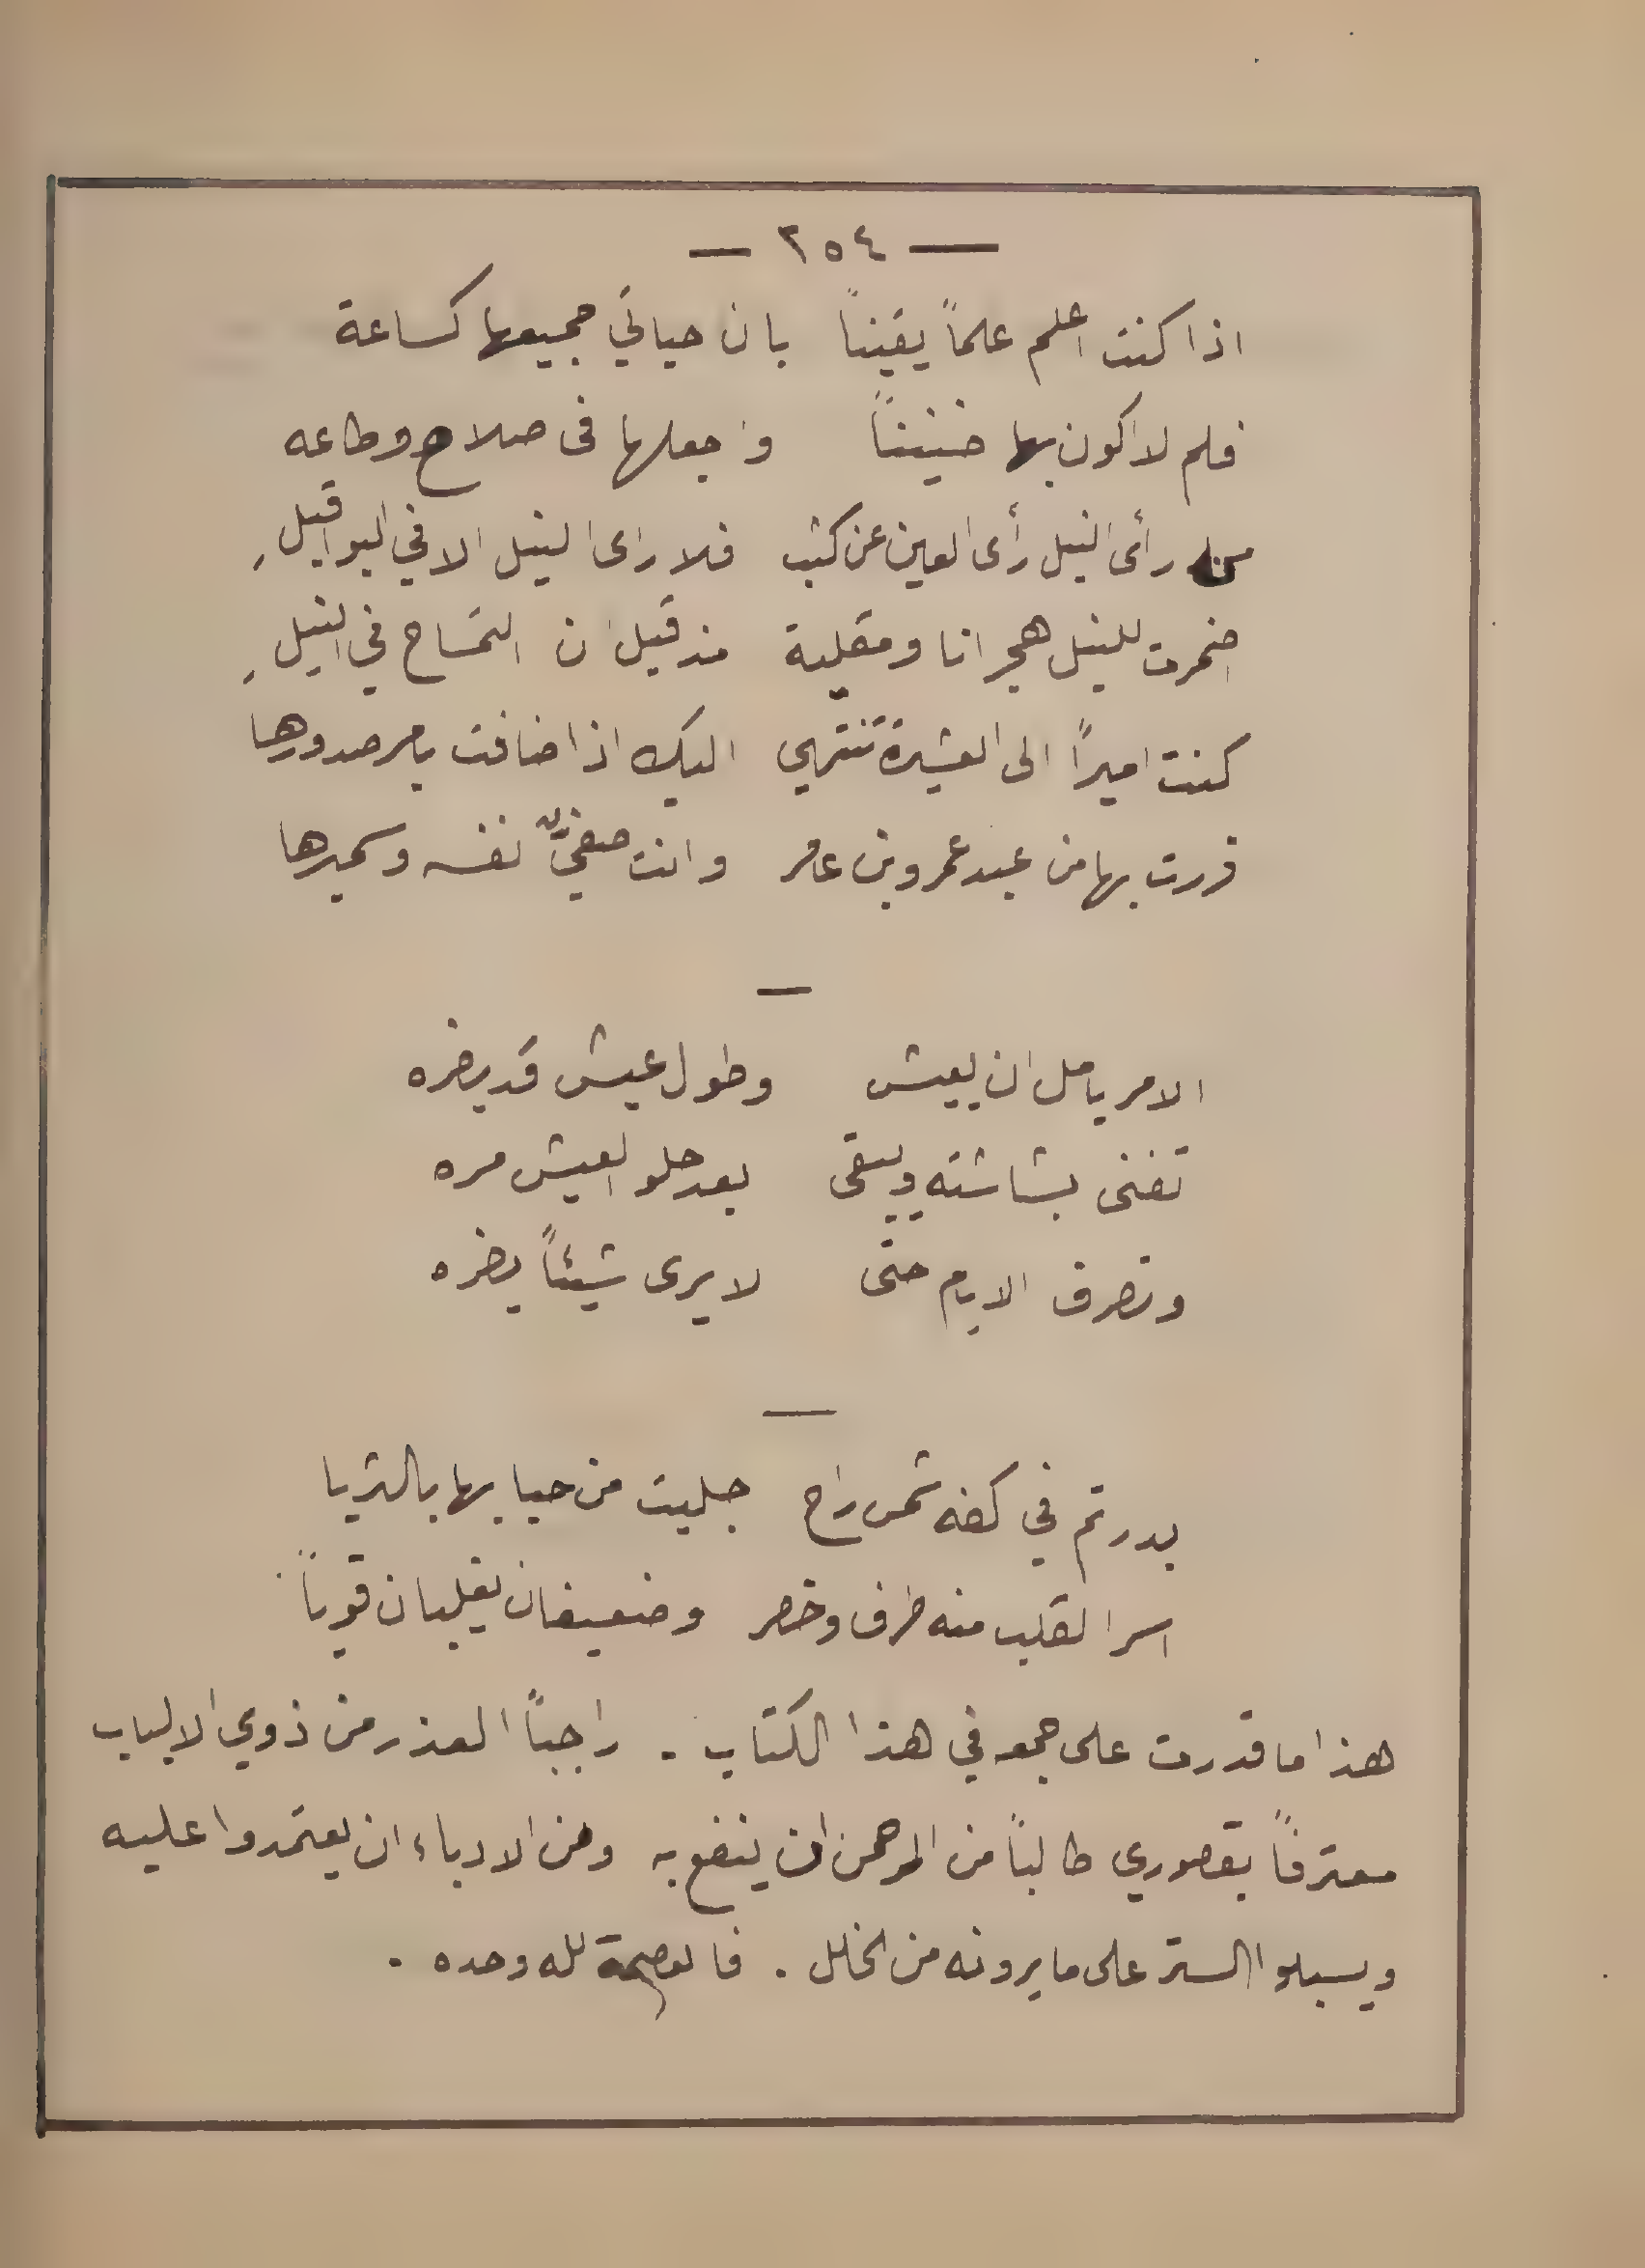 — ٢٥٤ —
اذا كنت اعلم علماً يقيناً بان حياتي جميعها كساعة
فلم لا اكون بها ضنيناً واجعلها فى صلاح وطاعه
من رأى النيل رأى العين عن كثب فلا راى النيل الا في البواقيل
اضمرت للنيل هجرانا ومقلية مذ قيل ان التمساح في النيل
كنت اميراً الى العشيرة تنتهي اليك اذا ضاقت بامر صدورها
قررت بها من عبد عمرو بن عامر وانت صفيّ نفسه وسميرها
—
الامر يامل ان يعيش وطول عيش قد يضره
تفنى بشاشته ويبقى بعد حلو العيش مره
وتصرف الايام حتى لا يرى شيئاً يضره
—
بدر تم في كفه شمس راح جليت من حبابها بالثريا
اسر القلب منه طرف وخصر وضعيفان يغلبان قوياً
هذا ما قدرت على جمعه في هذا الكتاب . راجياً العذر من ذوي الالباب
معترفاً بقصوري طالباً من الرحمن ان ينفع به ومن الادباء ان يعتمدوا عليه
ويسبلوا الستر على ما يرونه من الخلل . فالعصمة لله وحده .